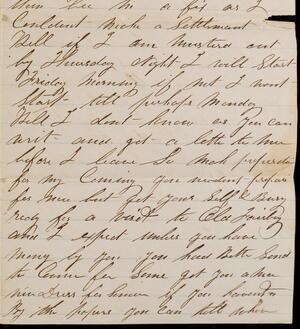 him see th a far as I
Couldent make a Settlement
Bell if I am Musterd out
by Thursday Night I will Start
Friday Morning if not I wont
Start till perhaps Monday
Bell I dont know as you can
writ and got a lette to me
before I leave So Make
for my Coming you neadent prepare
for me but get your Self &
redy for a visit to
and I expect unless you have
money by you you had Better Send
to for Some got you a new
nice Dress for know if you havent
by the papers you can till when